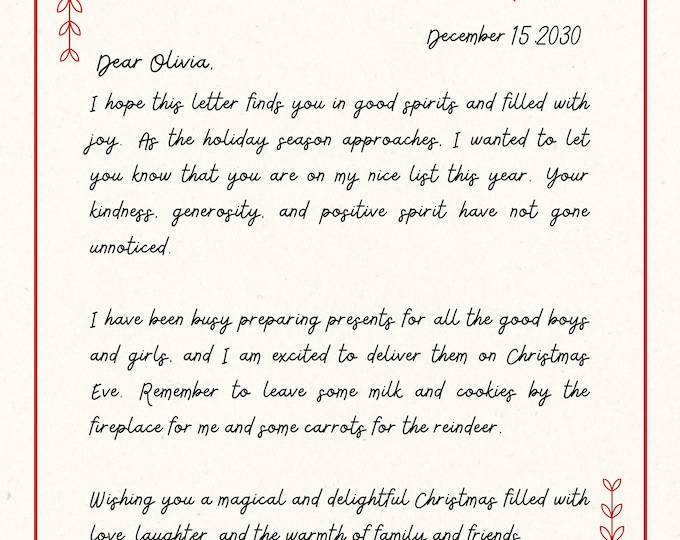 December 15.2030
Dear Olivia,
I hope this letter finds you in good spirits and filled with
joy. As the holiday season approaches, I wanted to let
you know that you are on my nice list this year. Your
kindness, generosity, and positive spirit have not gone
unnoticed.
I have been busy preparing presents for all the good boys
and girls, and I am excited to deliver them on Christmas
Eve. Remember to leave some milk and cookies by the
fireplace for me and some carrots for the reindeer.
Wishing you a magical and delightful Christmas filled with
love, laughter, and the warmth of family and friends